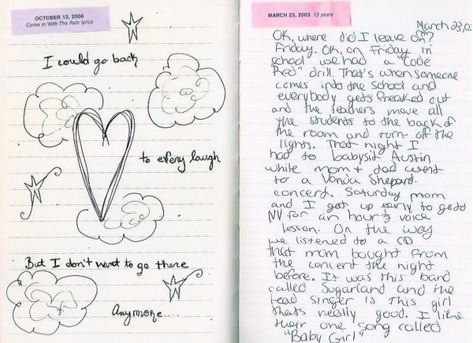 OCTOBER 12, 2006
Come in With The Rain lyrics
I could go back
to every laugh
But I don't want to go there
Anymore....
MARCH 23, 2003 12 years
March 23,03
OK, where did I leave off?
Friday. OK, on Friday in
school we had a "Code
Red" drill. That's when someone
comes into the school and
everybody gets freaked out
and the teachers move all
the students to the back of
the room and turn off the
lights. That night I
had to babysit Austin
while mom + dad went
to a Vonda Shepard
concert. Saturday mom
and I got up early to go to
NY for an hour's voice
lesson. On the way
we listened to a CD
that mom bought from
the concert the night
before. It was this band
called Sugarland and the
lead singer is this girl
that's really good. I like
their one song called
"Baby Girl"